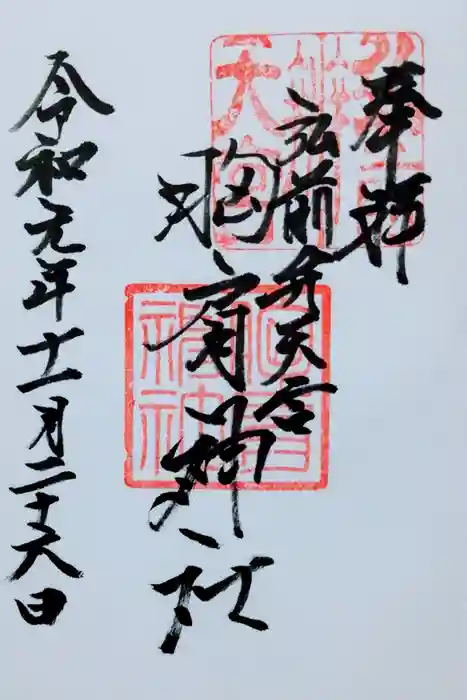 奉拝
弘前弁天宮
胸肩神社
令和元年十一月二十六日